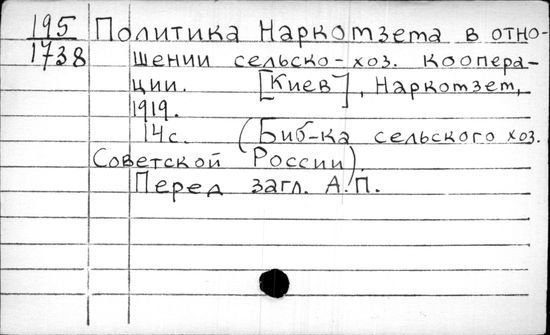 195 Политика Наркомзема в отно-
1738 шении сельско-хоз. коопера-
ции. [Киев], Наркомзем,
1919.
14с. (Биб-ка сельского хоз.
Советской России)
Перед загл. А.П.